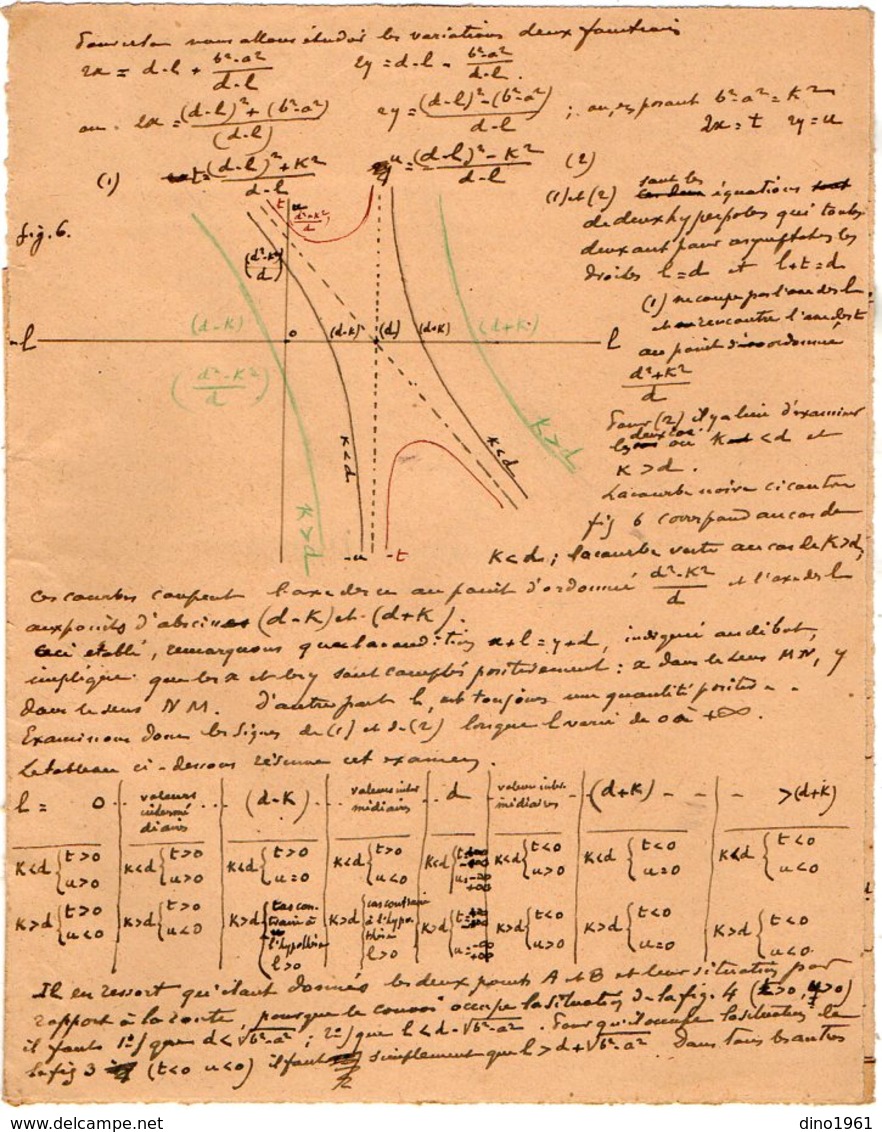 Pour cela nous allons étudier les variations deux fonctions
2x = d-l + (b²-a²)/(d-l)    2y = d-l - (b²-a²)/(d-l).
ou 2x = ((d-l)²+(b²-a²))/(d-l)    2y = ((d-l)²-(b²-a²))/(d-l) ; ou, en posant b²-a² = K²
2x = t  2y = u
(1) t = ((d-l)²+K²)/(d-l)    u = ((d-l)²-K²)/(d-l)  (2)
fig. 6.
t
u
(d²+K²)/d
(d²-K²)/d
(d-K)
(d²-K²)/d
-l
o
(d-K)
(d)
(d+K)
(d+K)
l
K<d
K<d
K>d
K>d
-u
-t
(1) et (2) sont les équations
de deux hyperboles qui toutes
deux ont pour asymptotes les
droites l=d et l+t=d
(1) ne coupe pas l'axe des l
et rencontre l'axe des t
au point d'ordonnée
(d²+K²)/d
Pour (2) il y a lieu d'examiner
les deux cas où K<d et
K>d.
La courbe noire ci contre
fig 6 correspond au cas de
K<d ; la courbe verte au cas de K>d,
ces courbes coupent l'axe des u au point d'ordonnée (d²-K²)/d et l'axe des l
aux points d'abscisses (d-K) et (d+K).
Ceci établi, remarquons que la condition x+l = y+d, indiquée au début,
implique que les x et les y sont comptés positivement : x dans le sens MN, y
dans le sens NM. D'autre part l, est toujours une quantité positive.
Examinons donc les signes de (1) et de (2) lorsque l varie de 0 à +∞.
Le tableau ci-dessous résume cet examen.
l = 0 .. valeurs intermédiaires .. (d-K) ... valeurs intermédiaires .. d .. valeurs intermédiaires - (d+K) - - - >(d+K)
K<d { t>0 u>0 | K<d { t>0 u>0 | K<d { t>0 u=0 | K<d { t>0 u<0 | K<d { | K<d { t<0 u>0 | K<d { t<0 u=0 | K<d { t<0 u<0
K>d { t>0 u<0 | K>d { t>0 u<0 | K>d { cas contraire à l'hypothèse l>0 | K>d { cas contraire à l'hypothèse l>0 | K>d { | K>d { t<0 u>0 | K>d { t<0 u=0 | K>d { t<0 u<0
Il en ressort qu'étant donnés les deux points A et B et leur situation par
rapport à la route, pour que le convoi occupe la situation de la fig. 4 (t>0, u>0)
il faut 1°) que d<√(b²-a²) ; 2°) que l<d-√(b²-a²). Pour qu'il occupe la situation de
la fig 3 (t<0 u<0) il faut simplement que l>d+√(b²-a²). Dans tous les autres
delcampe.net
dino1961